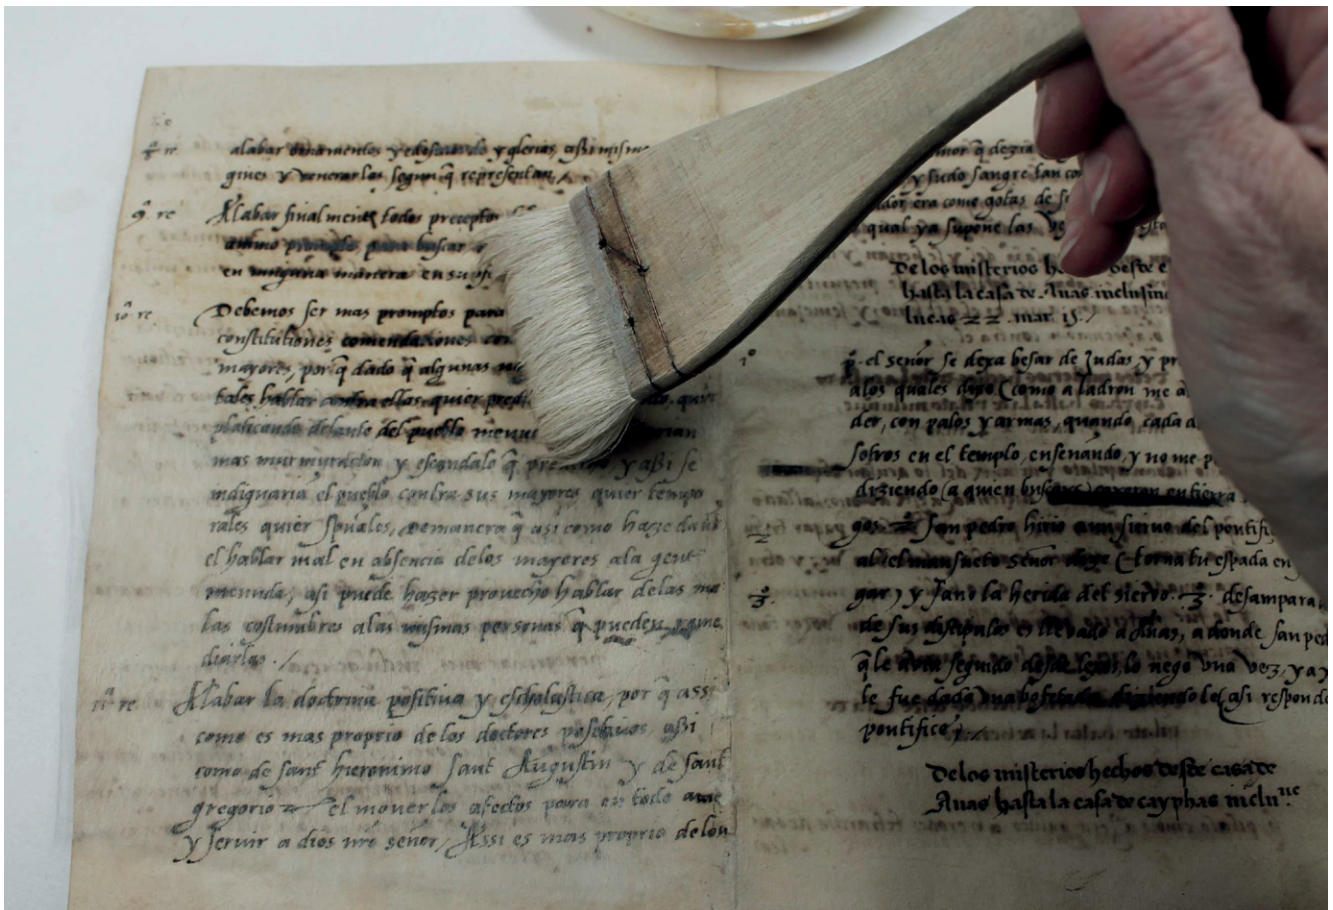 8ª re alabar ornamentos y edificio de yglesias, assi mismo
gines y venerarlas segun q̃ representan.
9ª re Alabar finalmente todos preceptos
animo prompto para buscar
en ninguna manera en su
10ª re Debemos ser mas promptos para
constitutiones comendaciones
mayores, por q̃ dado q̃ algunas
tales hablar contra ellas, quier
platicando delante del pueblo menu
mas murmuracion y escandalo q̃ y assi se
indignaria el pueblo contra sus mayores quier tempo
rales quier spũales, Demanera q̃ asi como haze
el hablar mal en absencia delos mayores ala gent
menuda, asi puede hazer provecho hablar delas ma
las costumbres alas mismas personas q̃ pueden reme
diarlas. /
11ª re Alabar la doctrina positiva y escholastica, por q̃ assi
como es mas proprio de los doctores positivos, assi
como de sant hieronimo sant Augustin y de sant
gregorio el mover los afectos para en todo amar
y servir a dios nr̃o señor, Assi es mas proprio delos
q̃ dezia
y sudo sangre tan co
era como gotas de
qual ya supone las
De los misterios desde e
hasta la casa de Anas inclusive
lucas 22. mar. 15. /
1º p̃. el señor se dexa besar de Judas, y
alos quales dize (como a ladron me a
der, con palos y armas, quando cada
sotros en el templo, enseñando, y no me p
diziendo (a quien buscais) cayeron en tierra
gos. 2 San pedro hirio a un siervo del pontifi
al el mansueto señor dize (torna tu espada en
3º gar) y sano la herida del siervo. 3º. desampara
de sus discipulos es llevado a Anas, a donde san ped
q̃ le avia seguido desde lexos, lo nego una vez, y a
le fue dada una bofetada diziendo le (asi responde
pontifice)
De los misterios hechos desde casa de
Anas hasta la casa de cayphas inclu